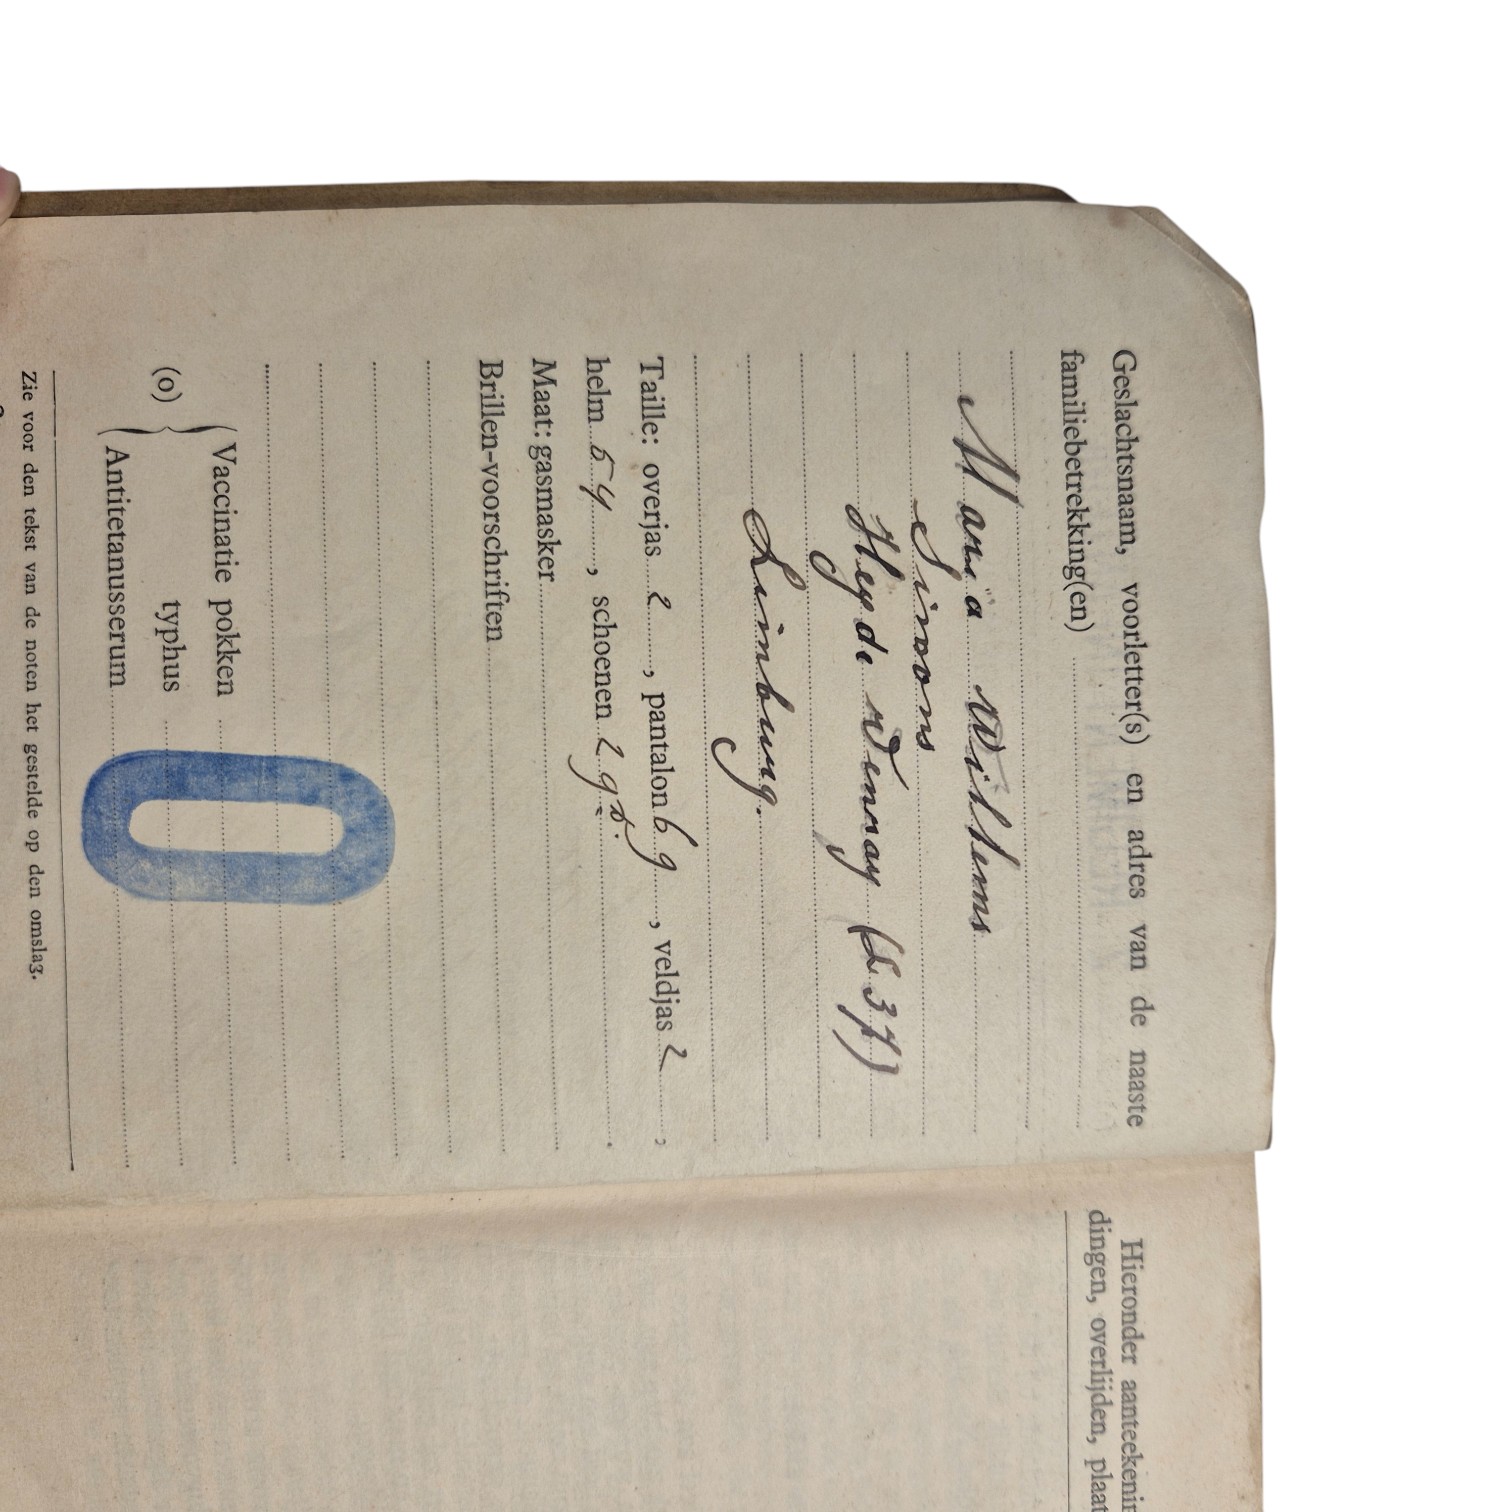 Geslachtsnaam, voorletter(s) en adres van de naaste
familiebetrekking(en)
Maria Willems
Simons
Heyde Venray (L 37)
Limburg.
Taille: overjas 2, pantalon 6 g, veldjas 2,
helm 54, schoenen 2 gr.
Maat: gasmasker
Brillen-voorschriften
Vaccinatie pokken
(o) typhus
Antitetanusserum
O
Zie voor den tekst van de noten het gestelde op den omslag.
Hieronder aanteekenin
dingen, overlijden, plaat